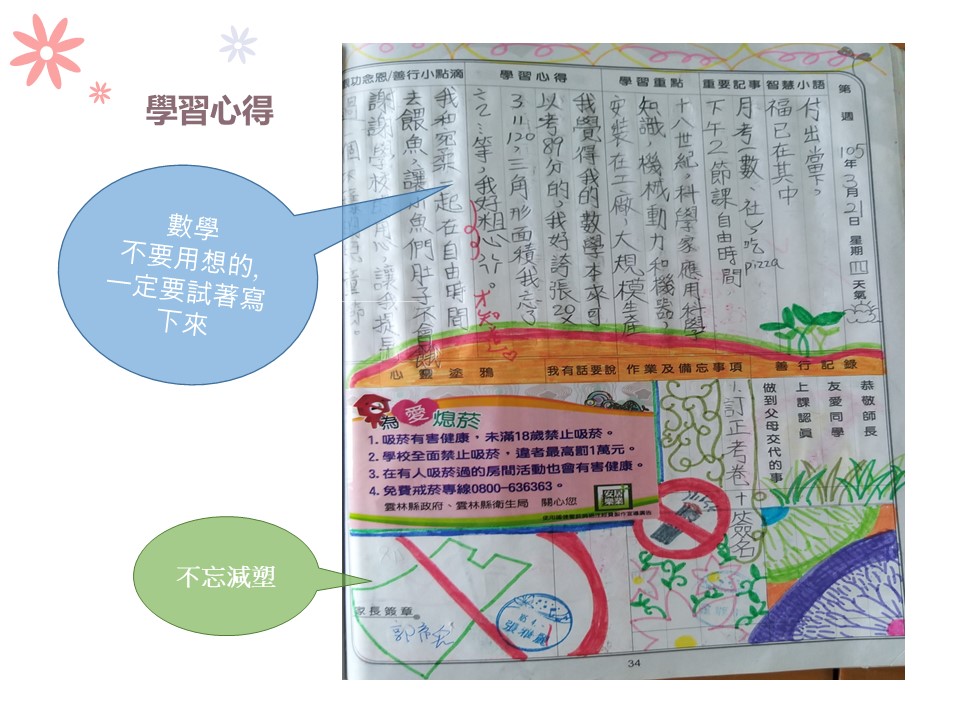 學習心得
數學
不要用想的,
一定要試著寫
下來
不忘減塑
第 週 105年3月21日 星期四 天氣
智慧小語
付出當下，
福已在其中
重要記事
月考（數、社）吃pizza
下午2節課自由時間
學習重點
十八世紀，科學家應用科學
知識，機械動力和機器，
安裝在工廠，大規模生產
學習心得
我覺得我的數學本來可
以考89分的，我好誇張20又
3 11 120，三角形面積我忘了
÷2…等，我好粗心ㄚ。
才知道
功念恩/善行小點滴
我和宛柔一起在自由時間
去餵魚，讓小魚們肚子不會餓
謝謝學校 用心，讓我提早
善行記錄
恭敬師長
友愛同學
上課認真
做到父母交代的事
作業及備忘事項
1.訂正考卷+簽名
我有話要說
心靈塗鴉
為愛熄菸
1. 吸菸有害健康，未滿18歲禁止吸菸。
2. 學校全面禁止吸菸，違者最高罰1萬元。
3. 在有人吸菸過的房間活動也會有害健康。
4. 免費戒菸專線0800-636363。
雲林縣政府、雲林縣衛生局 關心您
家長簽章
張雅麗
34